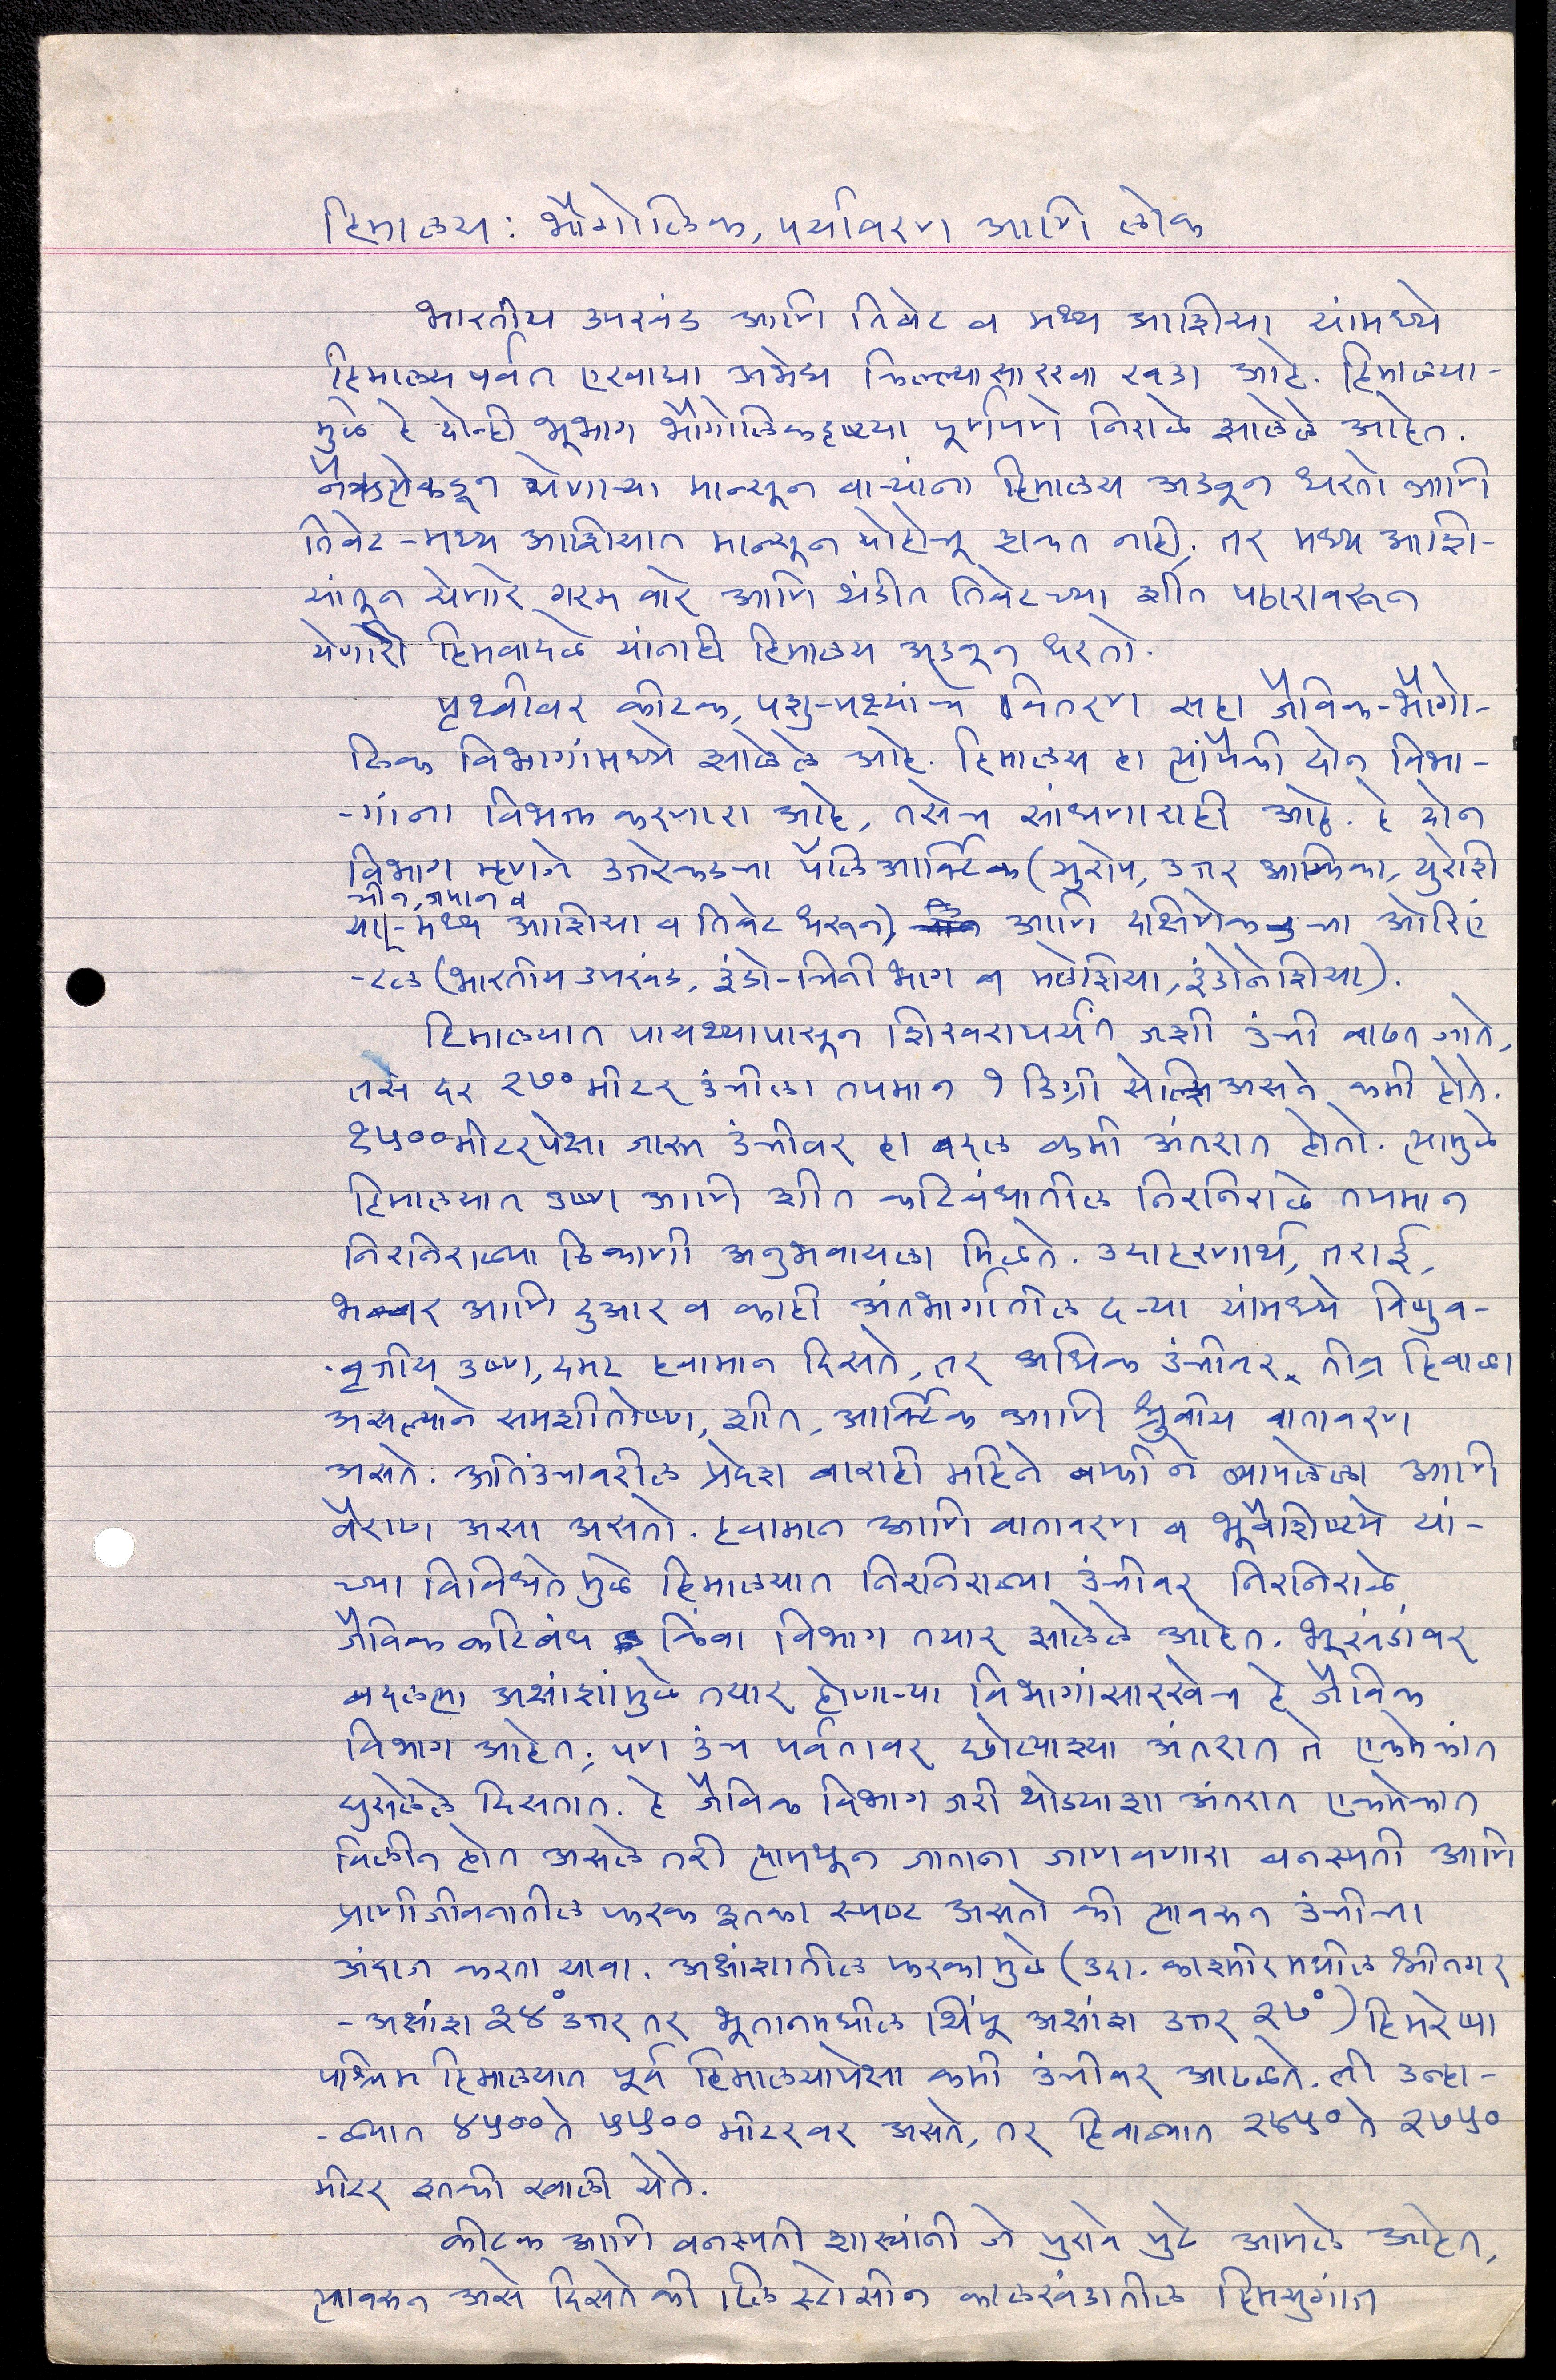 हिमालय : भौगोलिक, पर्यावरण आणि लोक
भारतीय उपखंड आणि तिबेट व मध्य आशिया यांमध्ये
हिमालय पर्वत एखाद्या अभेद्य किल्ल्यासारखा खडा आहे. हिमालया-
मुळे हे दोन्ही भूभाग भौगोलिकदृष्ट्या पूर्णपणे निराळे झालेले आहेत.
नैऋत्येकडून येणाऱ्या मान्सून वाऱ्यांना हिमालय अडवून धरतो आणि
तिबेट-मध्य आशियात मान्सून पोहोचू शकत नाही; तर मध्य आशि-
यांतून येणारे गरम वारे आणि थंडीत तिबेटच्या शीत पठारावरून
येणारी हिमवादळे यांनाही हिमालय अडवून धरतो.
पृथ्वीवर कीटक, पशु-पक्ष्यांचे वितरण सहा जैविक-भौगो-
लिक विभागांमध्ये झालेले आहे. हिमालय हा त्यांपैकी दोन विभा-
-गांना विभक्त करणारा आहे, तसेच सांधणाराही आहे. हे दोन
विभाग म्हणजे उत्तरेकडचा पॅलिआर्क्टिक (युरोप, उत्तर आफ्रिका, युरोशि
चीन, जपान व
या - मध्य आशिया व तिबेट धरून), आणि दक्षिणेकडचा ओरिएं
-टल (भारतीय उपखंड, इंडो-चिनी भाग व मलेशिया, इंडोनेशिया).
हिमालयात पायथ्यापासून शिखरापर्यंत जशी उंची वाढत जाते,
तसे दर २७० मीटर उंचीला तपमान १ डिग्री सेल्सिअसने कमी होते.
१५०० मीटरपेक्षा जास्त उंचीवर हा बदल कमी अंतरात होतो. त्यामुळे
हिमालयात उष्ण आणि शीत कटिबंधातील निरनिराळे तपमान
निरनिराळ्या ठिकाणी अनुभवायला मिळते. उदाहरणार्थ, तराई,
भाबर आणि दुआर व काही अंतर्भागातील दऱ्या यांमध्ये विषुव-
-वृत्तीय उष्ण, दमट हवामान दिसते, तर अधिक उंचीवर तीव्र हिवाळा
असल्याने समशीतोष्ण, शीत, आर्क्टिक आणि ध्रुवीय वातावरण
असते. अतिउंचावरील प्रदेश बाराही महिने बर्फाने व्यापलेला आणि
वैराण असा असतो. हवामान आणि वातावरण व भूवैशिष्ट्ये यां-
च्या विविधतेमुळे हिमालयात निरनिराळ्या उंचीवर निरनिराळे
जैविक कटिबंध किंवा विभाग तयार झालेले आहेत. भूखंडांवर
बदलत्या अक्षांशांमुळे तयार होणाऱ्या विभागांसारखेच हे जैविक
विभाग आहेत; पण उंच पर्वतावर छोट्याश्या अंतरात ते एकमेकांत
घुसलेले दिसतात. हे जैविक विभाग जरी थोड्याशा अंतरात एकमेकात
विलीन होत असले तरी त्यामधून जाताना जाणवणारा वनस्पती आणि
प्राणीजीवनातील फरक इतका स्पष्ट असतो की त्यावरून उंचीचा
अंदाज करता यावा. अक्षांशातील फरकामुळे (उदा. काश्मीरमधील श्रीनगर
- अक्षांश ३४° उत्तर तर भूतानमधील थिंपू अक्षांश उत्तर २७°) हिमरेषा
पश्चिम हिमालयात पूर्व हिमालयापेक्षा कमी उंचीवर आढळते. ती उन्हा-
-ळ्यात ४५०० ते ५५०० मीटरवर असते, तर हिवाळ्यात ते २७५०
मीटर इतकी खाली येते.
कीटक आणि वनस्पती शास्त्यांनी जे पुरावे पुढे आणले आहेत,
त्यावरून असे दिसते की प्लिस्टोसीन कालखंडातील हिमयुगांत